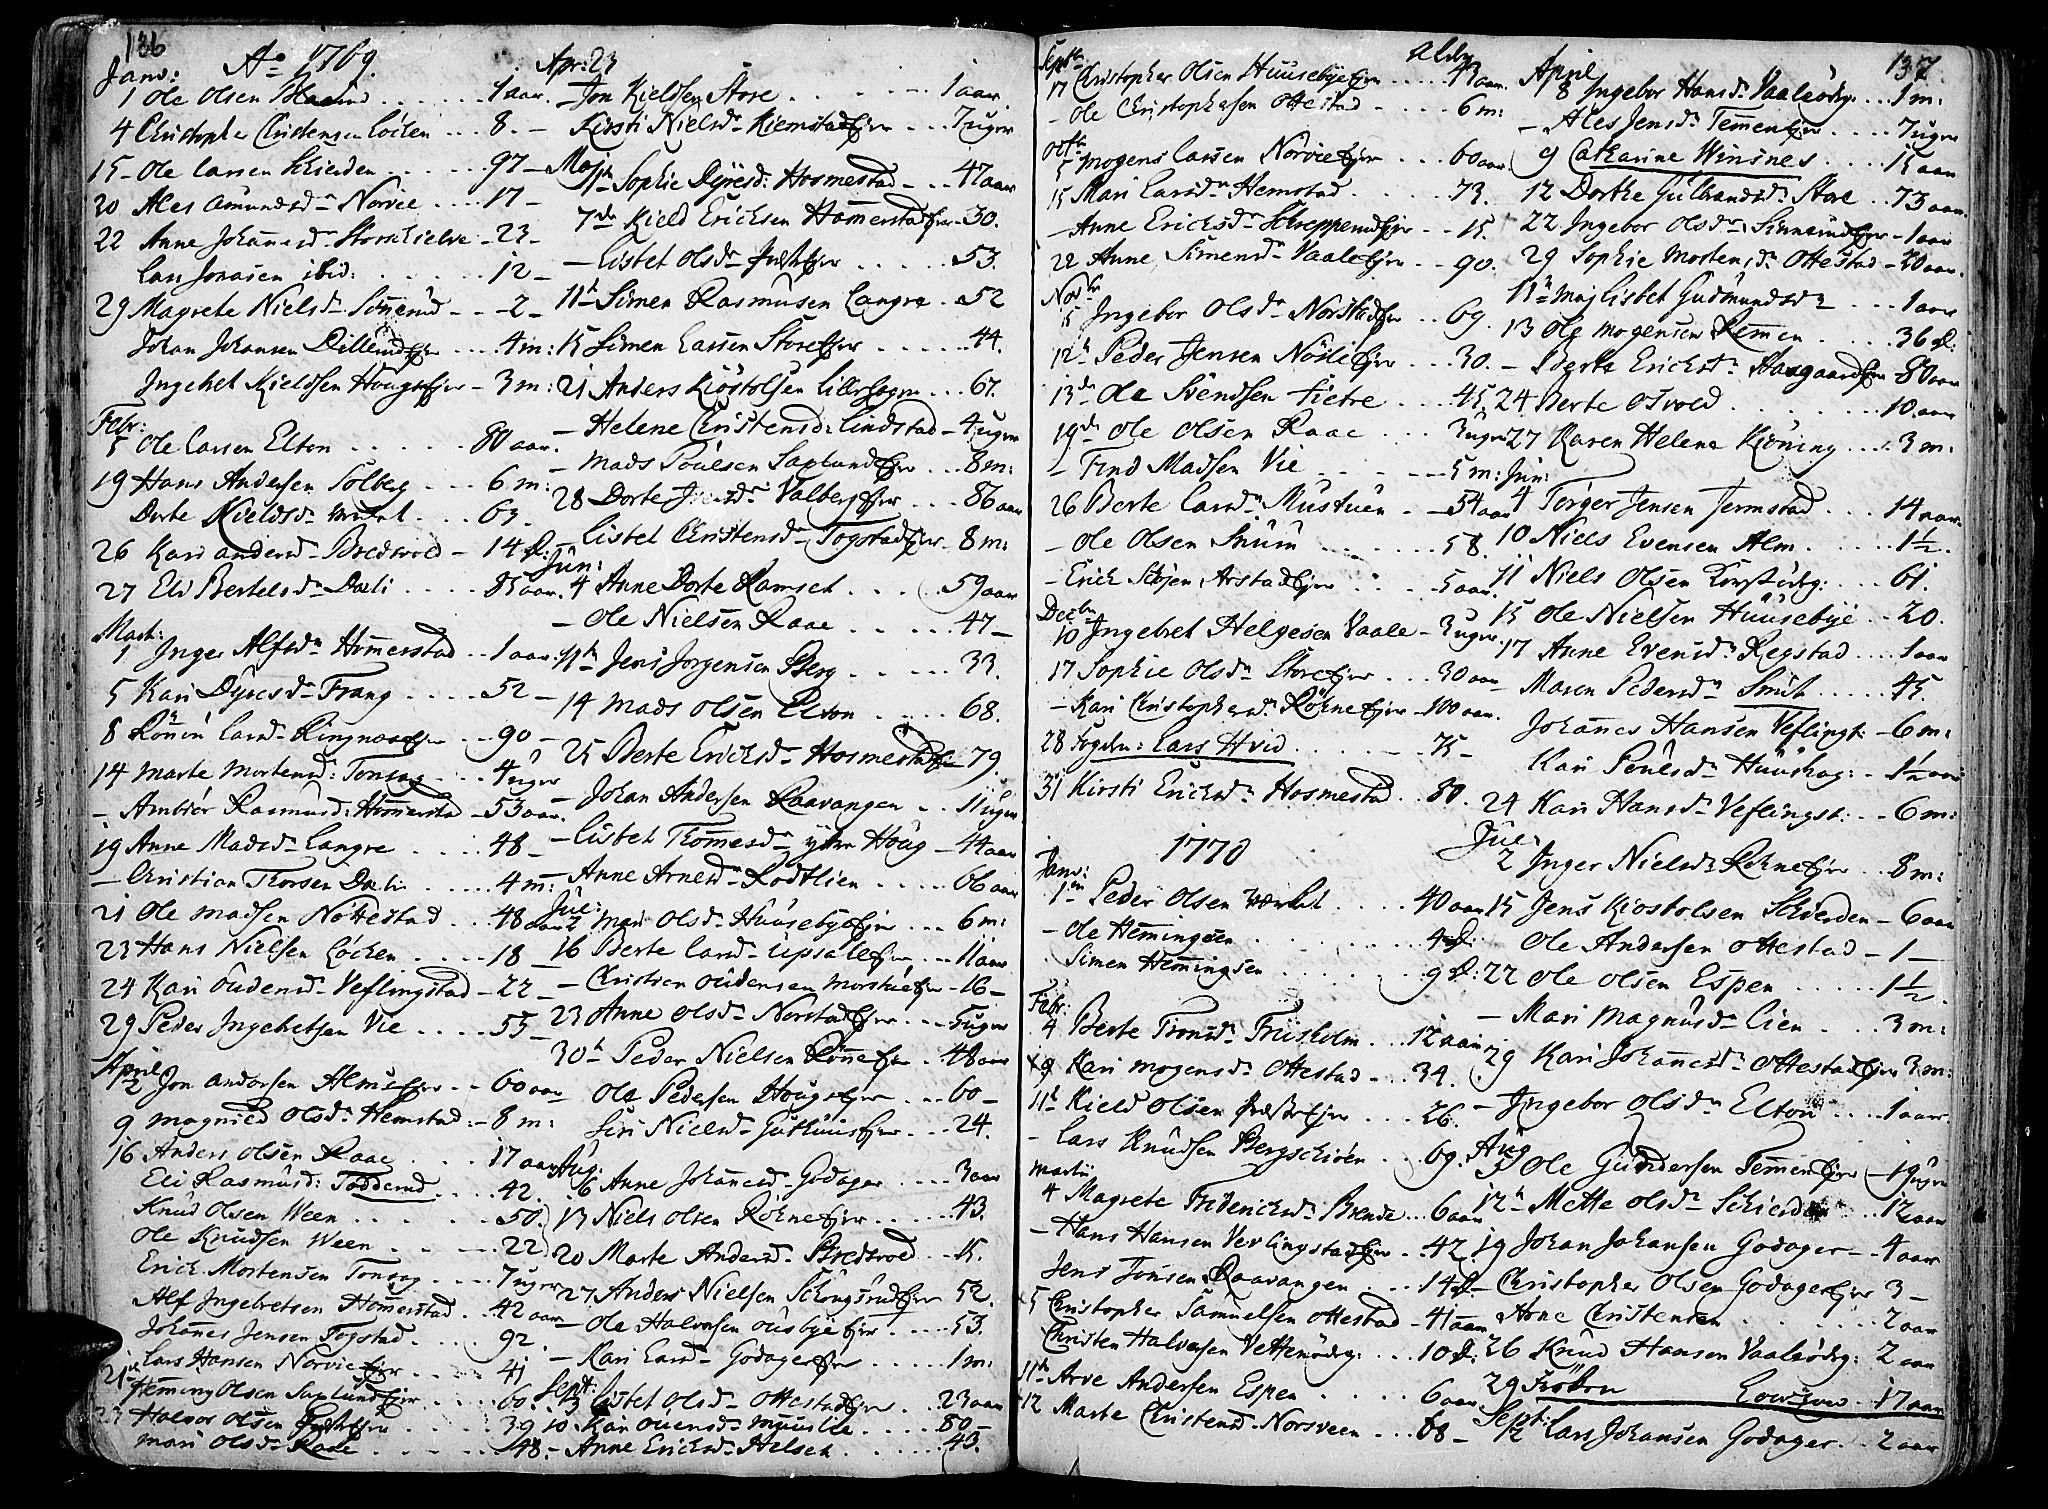 136
Ao 1769.
Janu:
1 Ole Olsen . . . 1 aar.
4 Christopher Christensen Løcken . . . 8. -
15 - Ole Larsen Skierden . . . 97 -
20 Ales Amundsd. Norvie . . . 17 -
22 Anne Johannesd. - 23 -
Lars Jonasen ibid: . . . 12 -
29 Magrete Nielsd. Sønnerud - - 2 -
Johan Johansen Dillerudejer . . . 4 m:
Ingebret Kieldsen Hougsejer - 3 m:
Febr:
5 Ole Larsen Elton . . . 80 aar.
19 Hans Andersen Solberg . . . 6 m:
Dorte Kieldsd. . . . 63.
26 Kari Andersd. Bredvold - 14 D:
27 Eli Bertelsd. Dæli . . . 85 aar.
Mart:
1 Inger Alfsd. Hommerstad . . 1 aar
5 Kari Dyresd. Frang . . . 52 -
8 Rønnou Larsd. Ringnæsejer . . 90 -
14 Marte Mortensd: Tonsag . . . 4 uger
- Rasmusd: Hommerstad - 53 aar.
19 Anne Madsd. Langre . . . 48 -
- Christian Thorsen Dæli . . . 4 m:
21 Ole Madsen Nøttestad . . 48 aar
23 Hans Nielsen Løcken . . . 18 -
24 Kari Oudensd. Veflingstad - 22 -
29 Peder Ingebretsen Vie . . . 55 -
April
2 Jon Andersen Almsejer . . 60 aar
9 Magnild Olsd. Hemstad - 8 m:
16 Anders Olsen Raae . . . 17 aar
Eli Rasmusd: Todderud . . . 42.
Knud Olsen Ween . . . 50.
Ole Knudsen Ween . . . 22
Erich Mortensen Tonsag . . . 7 uger
Alf Ingebretsen Hommerstad . . 42 aar
Johannes Jensen Togstad . . . 92.
21 Lars Hansen Norvie Ejer . . 41
Hemming Olsen Saxlundejer . . 60.
23 Halvor Olsen Præstejer . . . 39
Mari Olsd. Raae . . . 48.
Apr: 23
- Jon Kieldsen Store . . . 1 aar
- Kirsti Nielsd. Hiemstadejer . . . 7 uger
Maj
1 - Sophie Dyresd: Hosmestad - . . 47 aar
7de Kield Erichsen Hommerstadejer - 30.
- Lisbet Olsd. Præstejer . . . 53.
11te Simen Rasmusen Langre . . 52
15 Simen Larsen Storeejer . . . 44.
21 Anders Kiøstolsen . . . 67.
- Helene Christensd: Lindstad - 4 uger
- Mads Poulsen Saxlundejer . . . 8 m:
28 Dorte Jensd. Valbergejer . . . 86 aar
- Lisbet Christensd. Togstadejer - 8 m:
Jun:
4 Anne Dorte Ramsch . . . 59 aar
- Ole Nielsen Raae . . . 47 -
11te Jens Jørgensen Berg . . . 33.
14 Mads Olsen Elton . . . 68.
25 Berte Erichsd. Hosmestad - 79.
- Johan Andersen Raavangen . . 11 uger
- Lisbet Thomesd. ytter Houg - 44 aar
- Anne Arnesd. Rodtlien . . . 66 aar
Jul:
2 Mari Olsd. Huusebyeejer . . . 6 m:
16 Berte Larsd. Upsalleejer . . 11 aar
- Christian Oudensen Morstueejer - 16 -
23 Anne Olsd. Norstadejer . . . 5 uger
30te Peder Nielsen Rønneejer . . 48 aar
Ole Pedersen Hougsejer . . . 60 -
Siri Nielsd. Guthuusejer . . . 24.
Aug:
6 Anne Johannesd. Godager . . . 3 aar
13 Niels Olsen Røhneejer . . . 43.
20 Marte Andersd. Bredvold . . . 15.
27 Anders Nielsen Schongsrudejer 52.
- Ole Halvorsen Ousbyeejer . . . 53.
- Kari Larsd. Godagerejer . . . 1 m:
Sept:
3 Lisbet Olsd. Ottestadejer . . . 23 aar
10 Kari Ouensd. . . . 80 -
- Anne Erichsd. Helseth . . . 43.
137
Septbr
17 Christopher Olsen Huusebyeejer . . . 43 aar.
- Ole Christophersen Ottestad . . . 6 m:
Octbr
5 Mogens Larsen Norvieejer . . . 60 aar
15 Mari Larsd. Hemstad . . . 73.
- Anne Erichsd. Schreppenudejer - . 15.
22 Anne Simensd. Vaaleejer . . 90.
Novbr
5 Ingebor Olsd. Norstadejer . . 69.
12te Peder Jensen Nøsleejer . . . 30.
13de Ole Svendsen Tietre . . . 45.
19de Ole Olsen Raae . . . 3 uger
- Find Madsen Vie . . . 5 m:
26 Berte Larsd. Mustuen - 54 aar
- Ole Olsen Snuu . . . 58.
- Erich Arstadejer . . . 5 aar.
Decbr
10 Ingebret Helgesen Vaale - 3 uger.
17 Sophie Olsd. Storeejer . . . 30 aar
- Kari Christophersd. Røhneejer - 100 aar.
28 Fogden: Lars Hvid . . . 75 -
31 Kirsti Erichsd. Hosmestad . . 80.
1770
Janu:
1ten Peder Olsen . . . 40 aar
- Ole Hemmingsen . . . 4 D:
Simen Hemmingsen . . . 9 D:
Febr:
4 Berte Tronsd. Friisholm . . . 12 aar
9 Kari Mogensd. Ottestad - . . 34.
11te Kield Olsen Præstejer . . . 26.
- Lars Knudsen Bergschiøen . . . 69.
Martii
4 Magrete Friderichsd. Brende . . 6 aar
- Hans Hansen Veflingstadejer . . 42
Jens Jonsen Raavangen . . . 14 D
5 Christopher Samuelsen Ottestad - 41 aar
Christen Halvorsen Vettenødeg: . . . 10 D:
11te Arve Andersen Espen . . . 6 aar
12 Marte Christensd. Norsveen . . . 68 -
April
8 Ingebor Hansd. Vaaleødeg: . . . 1 m:
- Ales Jensd. Temmenejer . . . 7 uger
9 Catharine Winsnes . . . 15 aar
12 Dorthe Gulbrandsd. Store . . 73 aar.
22 Ingebor Olsd. - 1 aar
29 Sophie Mortensd. Ottestad - 20 aar.
11te Maj Lisbet Gudmundsd. . . . 1 aar
13 Ole Mogensen Remmen . . . 36 D:
- Berte Erichsd. - 80 aar
24 Berte Osvold . . . 10 aar
27 Karen Helene Kiøning . . . 3 m:
Jun:
4 Torger Jensen Jermstad . . . 14 aar.
10 Niels Evensen Alm . . . 1½.
11 Niels Olsen . . . 61.
15 Ole Nielsen Huusebye . . 20.
17 Anne Evensd. Regstad . . . 1 aar
- Maren Pedersd. Smit . . . 45.
Johannes Hansen Veflingst: - 6 m:
Kari Poulsd. Huushag: - 1½ aar
24 Kari Hansd. Veflingst: - . 6 m:
Jul:
2 Inger Nielsd. Røhneejer . . 8 m:
15 Jens Kiøstolsen Schierden - 6 aar
Ole Andersen Ottestad - 1 -
22 Ole Olsen Espen . . . 1½.
- Mari Magnusd. Lien . . . 3 m:
29 Kari Johannesd. Ottestadejer 3 m:
- Ingebor Olsd. Elton . . . 1 aar
Aug
5 Ole Gundersen Temmenejer - 19 uger
12te Mette Olsd. Schierden . . . 12 aar
19 Johan Johansen Godager - . 4 aar
- Christopher Olsen Godagerejer 3 -
- Arne Christensen . . . 2 aar
26 Knud Hansen Vaaleødeg: 2 aar
29 Frøken Lowzow . . . 17 aar
Sept:
12 Lars Johansen Godager . . . 2 aar